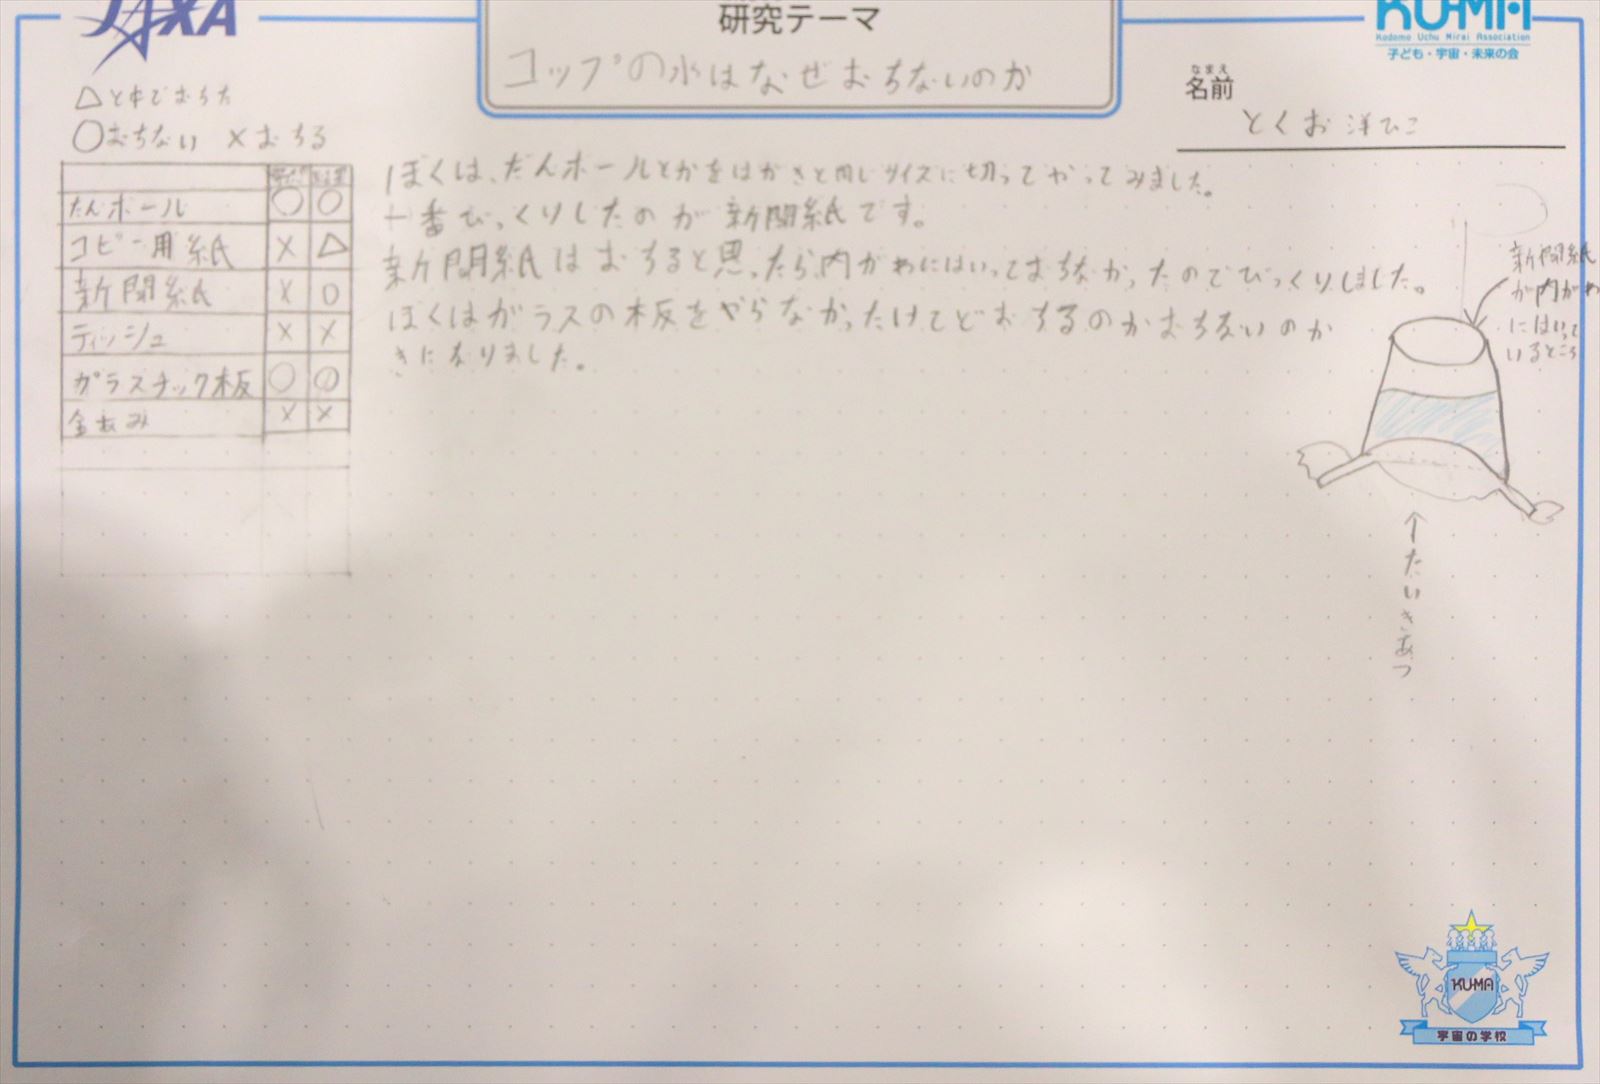 JAXA
研究テーマ
コップの水はなぜおちないのか
KU-MA
Kodomo Uchu Mirai Association
子ども・宇宙・未来の会
なまえ
名前
とくお 洋ひこ
△と中でおちた
○おちない ×おちる
だんボール ○ ○
コピー用紙 × △
新聞紙 × ○
ティッシュ × ×
プラスチック板 ○ ○
金あみ × ×
ぼくは、だんボールとかをはがきと同じサイズに切ってやってみました。
一番びっくりしたのが新聞紙です。
新聞紙はおちると思ったら内がわにはいっておちなかったのでびっくりしました。
ぼくはガラスの板をやらなかったけどおちるのかおちないのか
きになりました。
新聞紙
が内がわ
にはいって
いるところ
↑たいきあつ
KU-MA
宇宙の学校